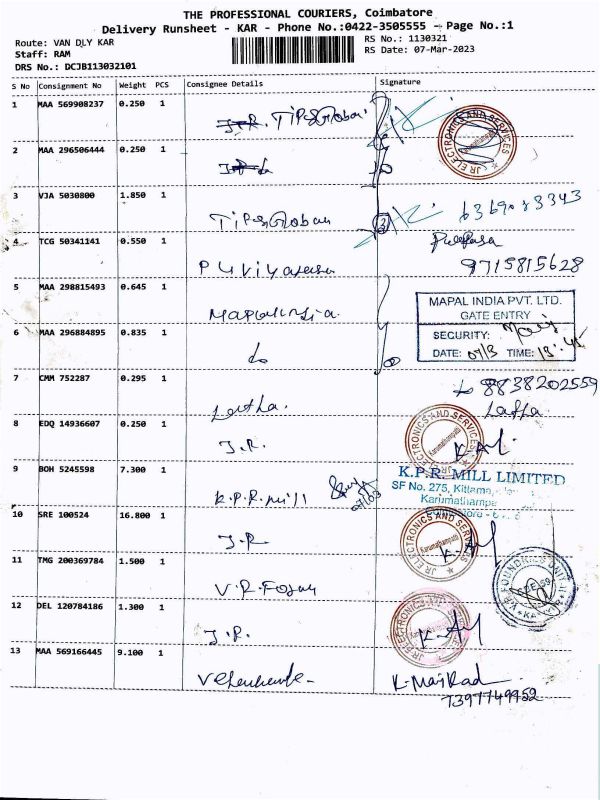 THE PROFESSIONAL COURIERS, Coimbatore
Delivery Runsheet - KAR - Phone No.:0422-3505555 - Page No.:1
Route: VAN DLY KAR
RS No.: 1130321
Staff: RAM
RS Date: 07-Mar-2023
DRS No.: DCJB113032101
S No Consignment No Weight PCS Consignee Details Signature
1 MAA 569908237 0.250 1
J.R. Tips Global
JR ELECTRONICS AND SERVICES
Karumathampatti
2 MAA 296506444 0.250 1
3 VJA 5030800 1.850 1
Tips Global
4 TCG 50341141 0.550 1
9715815628
5 MAA 298815493 0.645 1
Mapal India
MAPAL INDIA PVT. LTD.
GATE ENTRY
SECURITY:
DATE: 07/3 TIME: 13:45
6 MAA 296884895 0.835 1
7 CMM 752287 0.295 1
8838202559
Latha.
Latha
8 EDQ 14936607 0.250 1
J.R.
JR ELECTRONICS AND SERVICES
Karumathampatti
9 BOH 5245598 7.300 1
K.P.R. mill
07/03
K.P.R. MILL LIMITED
SF No. 275, Kittama
Karumathampa
10 SRE 100524 16.800 1
J.R
JR ELECTRONICS AND SERVICES
Karumathampatti
11 TMG 200369784 1.500 1
12 DEL 120784186 1.300 1
J.R.
JR ELECTRONICS AND SERVICES
13 MAA 569166445 9.100 1
7397749952